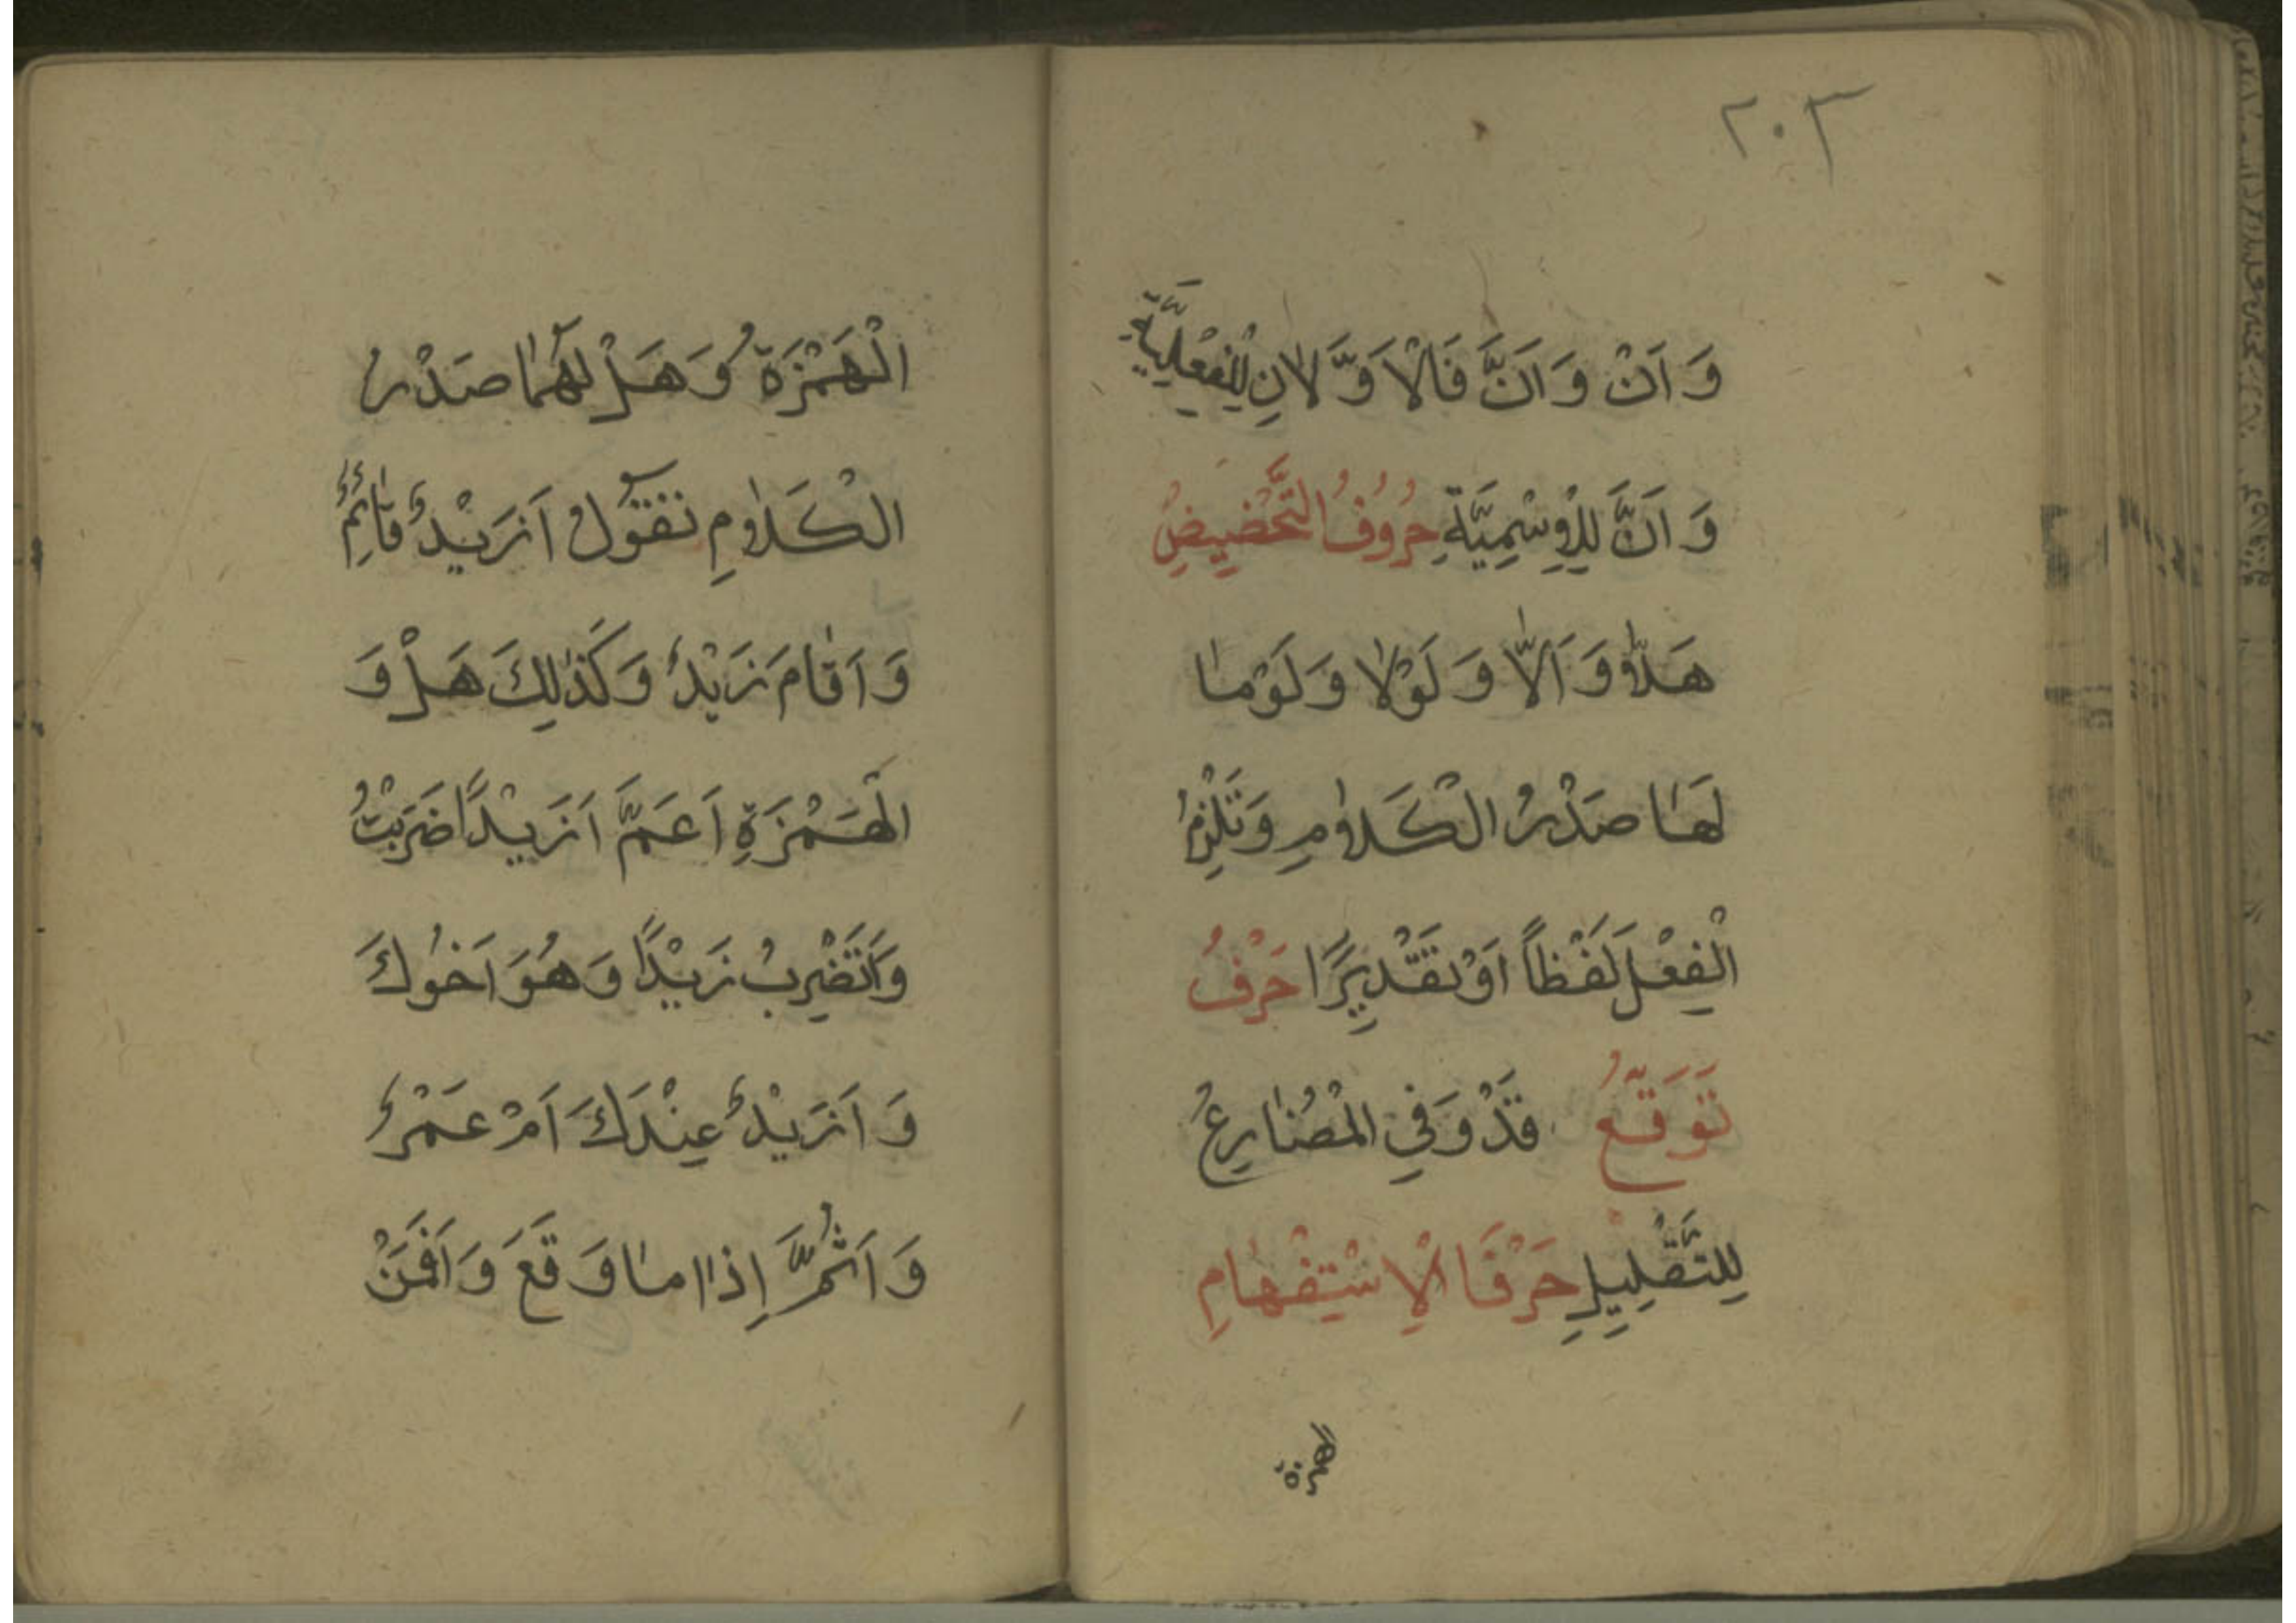 ٢٠٣
وَ اَنْ وَ اَنَّ فَالْاَوَّلَانِ لِلْفِعْلِيَّةِ
وَ اَنَّ لِلْاِسْمِيَّةِ حُرُوفُ التَّحْضِيضِ
هَلَّا وَ اَلَّا وَ لَوْلَا وَ لَوْمَا
لَهَا صَدْرُ الْكَلَامِ وَ تَلْزِمُ
الْفِعْلَ لَفْظاً اَوْ تَقْدِيرًا حَرْفُ
تَوَقُّعُ قَدْ وَ فِي الْمُضَارِعُ
لِلتَّقْلِيلِ حَرْفَا الْاِسْتِفْهَامِ
الهمزة
الْهَمْزَةُ وَ هَلْ لَهُمَا صَدْرُ
الْكَلَامِ تَقُولُ اَزَيْدٌ قَائِمٌ
وَ اَقَامَ زَيْدٌ وَ كَذٰلِكَ هَلْ وَ
الْهَمْزَةِ اَعَمَّ اَزَيْدًا ضَرَبْتُ
وَ اَتَضْرِبُ زَيْدًا وَ هُوَ اَخُوكَ
وَ اَزَيْدٌ عِنْدَكَ اَمْ عَمْرٌ
وَ اَثُمَّ اِذَا مَا وَقَعَ وَ اَفَمَنْ